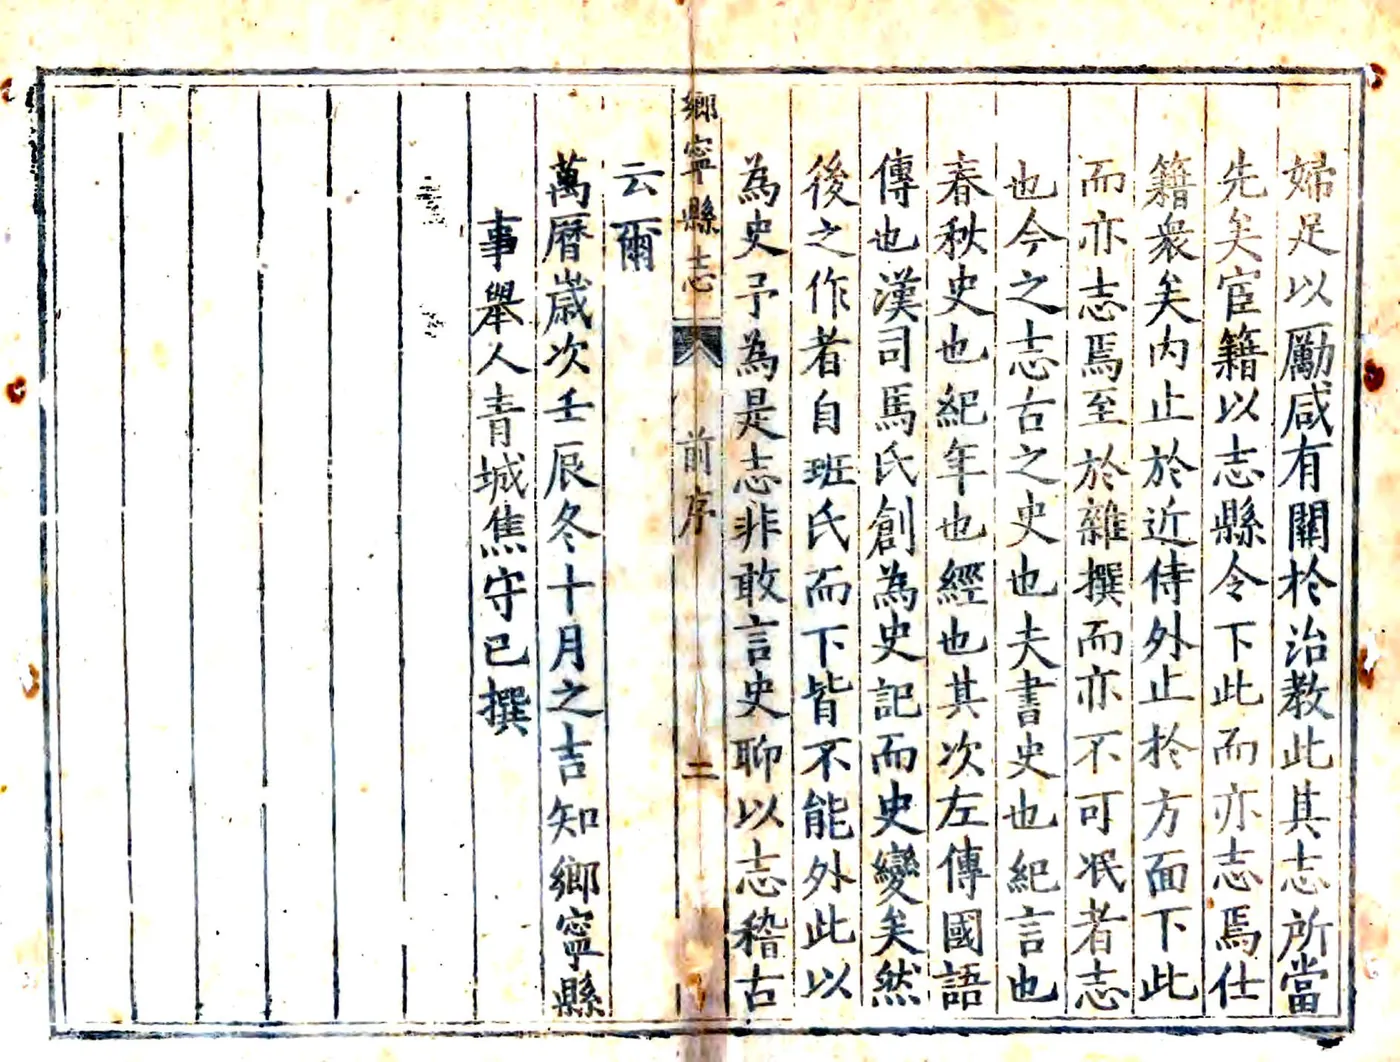 婦足以勵咸有關於治教此其志所當
先矣宦籍以志縣令下此而亦志焉仕
籍衆矣内止於近侍外止於方面下此
而亦志焉至於雜撰而亦不可冺者志
也今之志古之史也夫書史也紀言也
春秋史也紀年也經也其次左傳國語
傳也漢司馬氏創為史記而史變矣然
後之作者自班氏而下皆不能外此以
為史予為是志非敢言史聊以志稽古
鄉寧縣志
前序
二
云爾
萬曆歲次壬辰冬十月之吉知鄉寧縣
事舉人青城焦守已撰